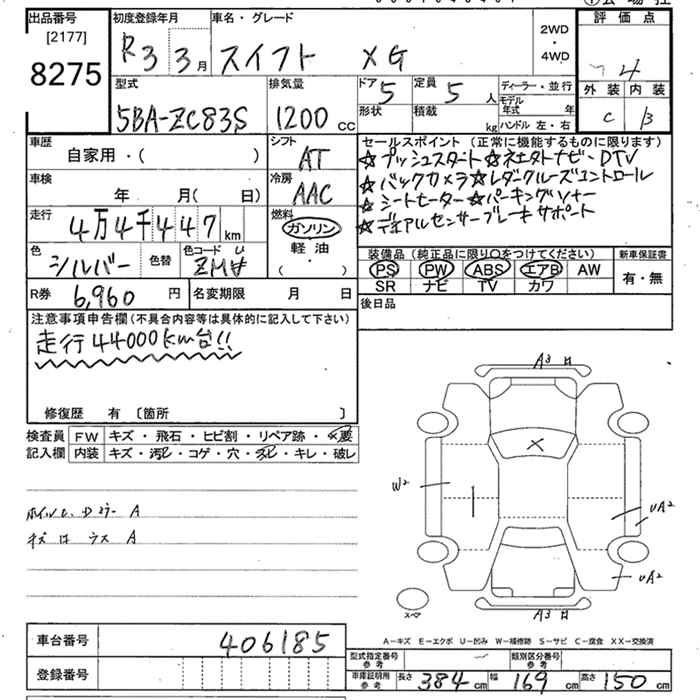 出品番号 [2177] 8275
初度登録年月 R3 3月
車名・グレード スイフト XG
2WD・4WD
評価点 4
外装 C 内装 B
型式 5BA-ZC83S
排気量 1200 cc
ドア 5 形状
定員 5 人 積載 kg
ディーラー・並行
モデル年式 年
ハンドル 左・右
車歴 自家用・( )
シフト AT
車検 年 月( 日)
冷房 AAC
走行 4万4千447 km
燃料 ガソリン 軽油 ( ・ )
色 シルバー 色替
色コード ZM
R券 6,960 円
名変期限 月 日
セールスポイント (正常に機能するものに限ります)
☆プッシュスタート☆ネエタトナビ・DTV
☆バックカメラ☆レダクルーズコントロール
☆シートヒーター☆パーキングソナー
☆デュアルセンサーブレーキサポート
装備品 (純正品に限り〇をつけてください) 新車保証書
PS PW ABS エアB AW 有・無
SR ナビ TV カワ
後日品
注意事項申告欄(不具合内容等は具体的に記入して下さい)
走行44000km台!!
修復歴 有 〔箇所 〕
検査員 FW キズ・飛石・ヒビ割・リペア跡・×要
記入欄 内装 キズ・汚レ・コゲ・穴・スレ・キレ・破レ
A3
W2
UA2
UA2
A3
スペア
A-キズ E-エクボ U-凹み W-補修跡 S-サビ C-腐食 XX-交換済
車台番号 406185
型式指定番号 参考 類別区分番号 参考
登録番号
車庫証明用 参考 長さ 384 cm 幅 169 cm 高さ 150 cm